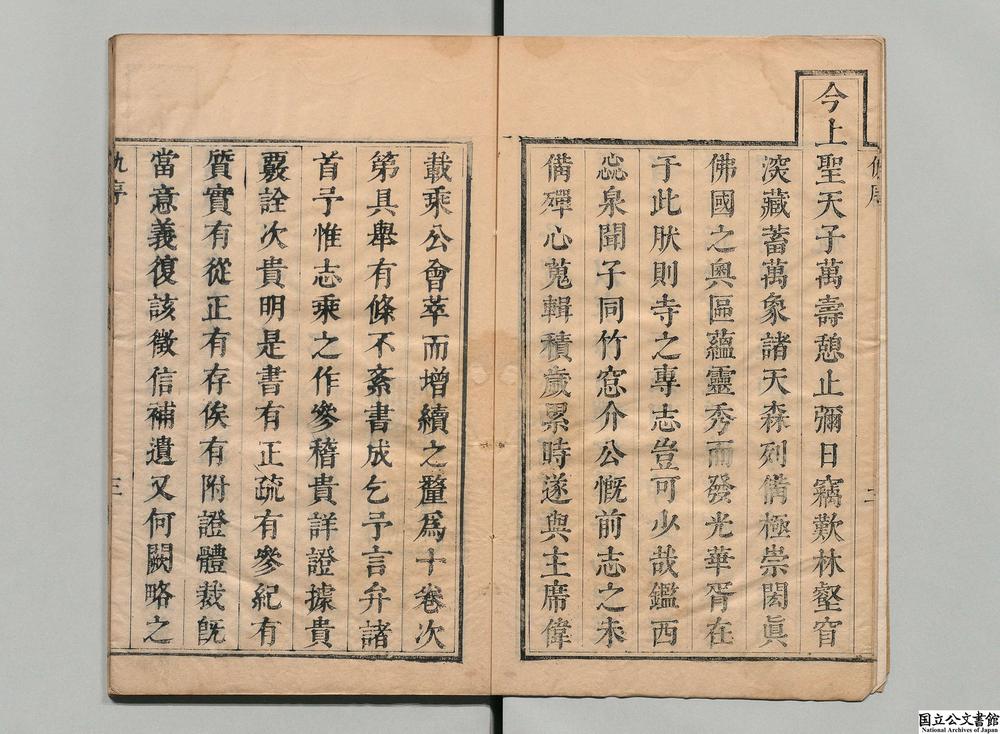 今上聖天子萬壽憩止彌日竊歎林壑窅
深藏蓄萬象諸天森列備極崇閎眞
佛國之奧區蘊靈秀而發光華胥在
于此肰則寺之專志豈可少哉鑑西
惢泉聞子同竹窓介公慨前志之未
備殫心蒐輯積歲累時遂與主席偉
載乘公會萃而增續之釐爲十卷次
第具舉有條不紊書成乞予言弁諸
首予惟志乘之作參稽貴詳證據貴
覈詮次貴明是書有正疏有參紀有
質實有從正有存俟有附證體裁既
當意義復該徵信補遺又何闕略之
序
三
国立公文書館
National Archives of Japan